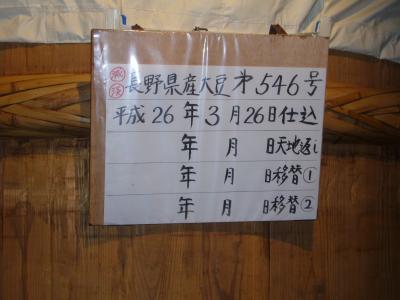 長野県産大豆 才546号
平成26年3月26日仕込
年 月 日天地返し
年 月 日移替①
年 月 日移替②